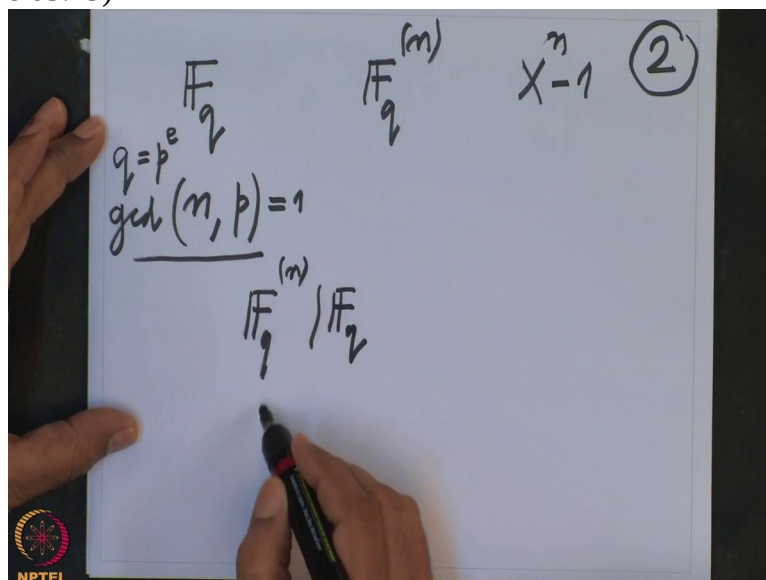 𝔽_q 𝔽_q^(n) X^n-1 2
q=p^e
gcd(n, p)=1
𝔽_q^(n) | 𝔽_q
NPTEL